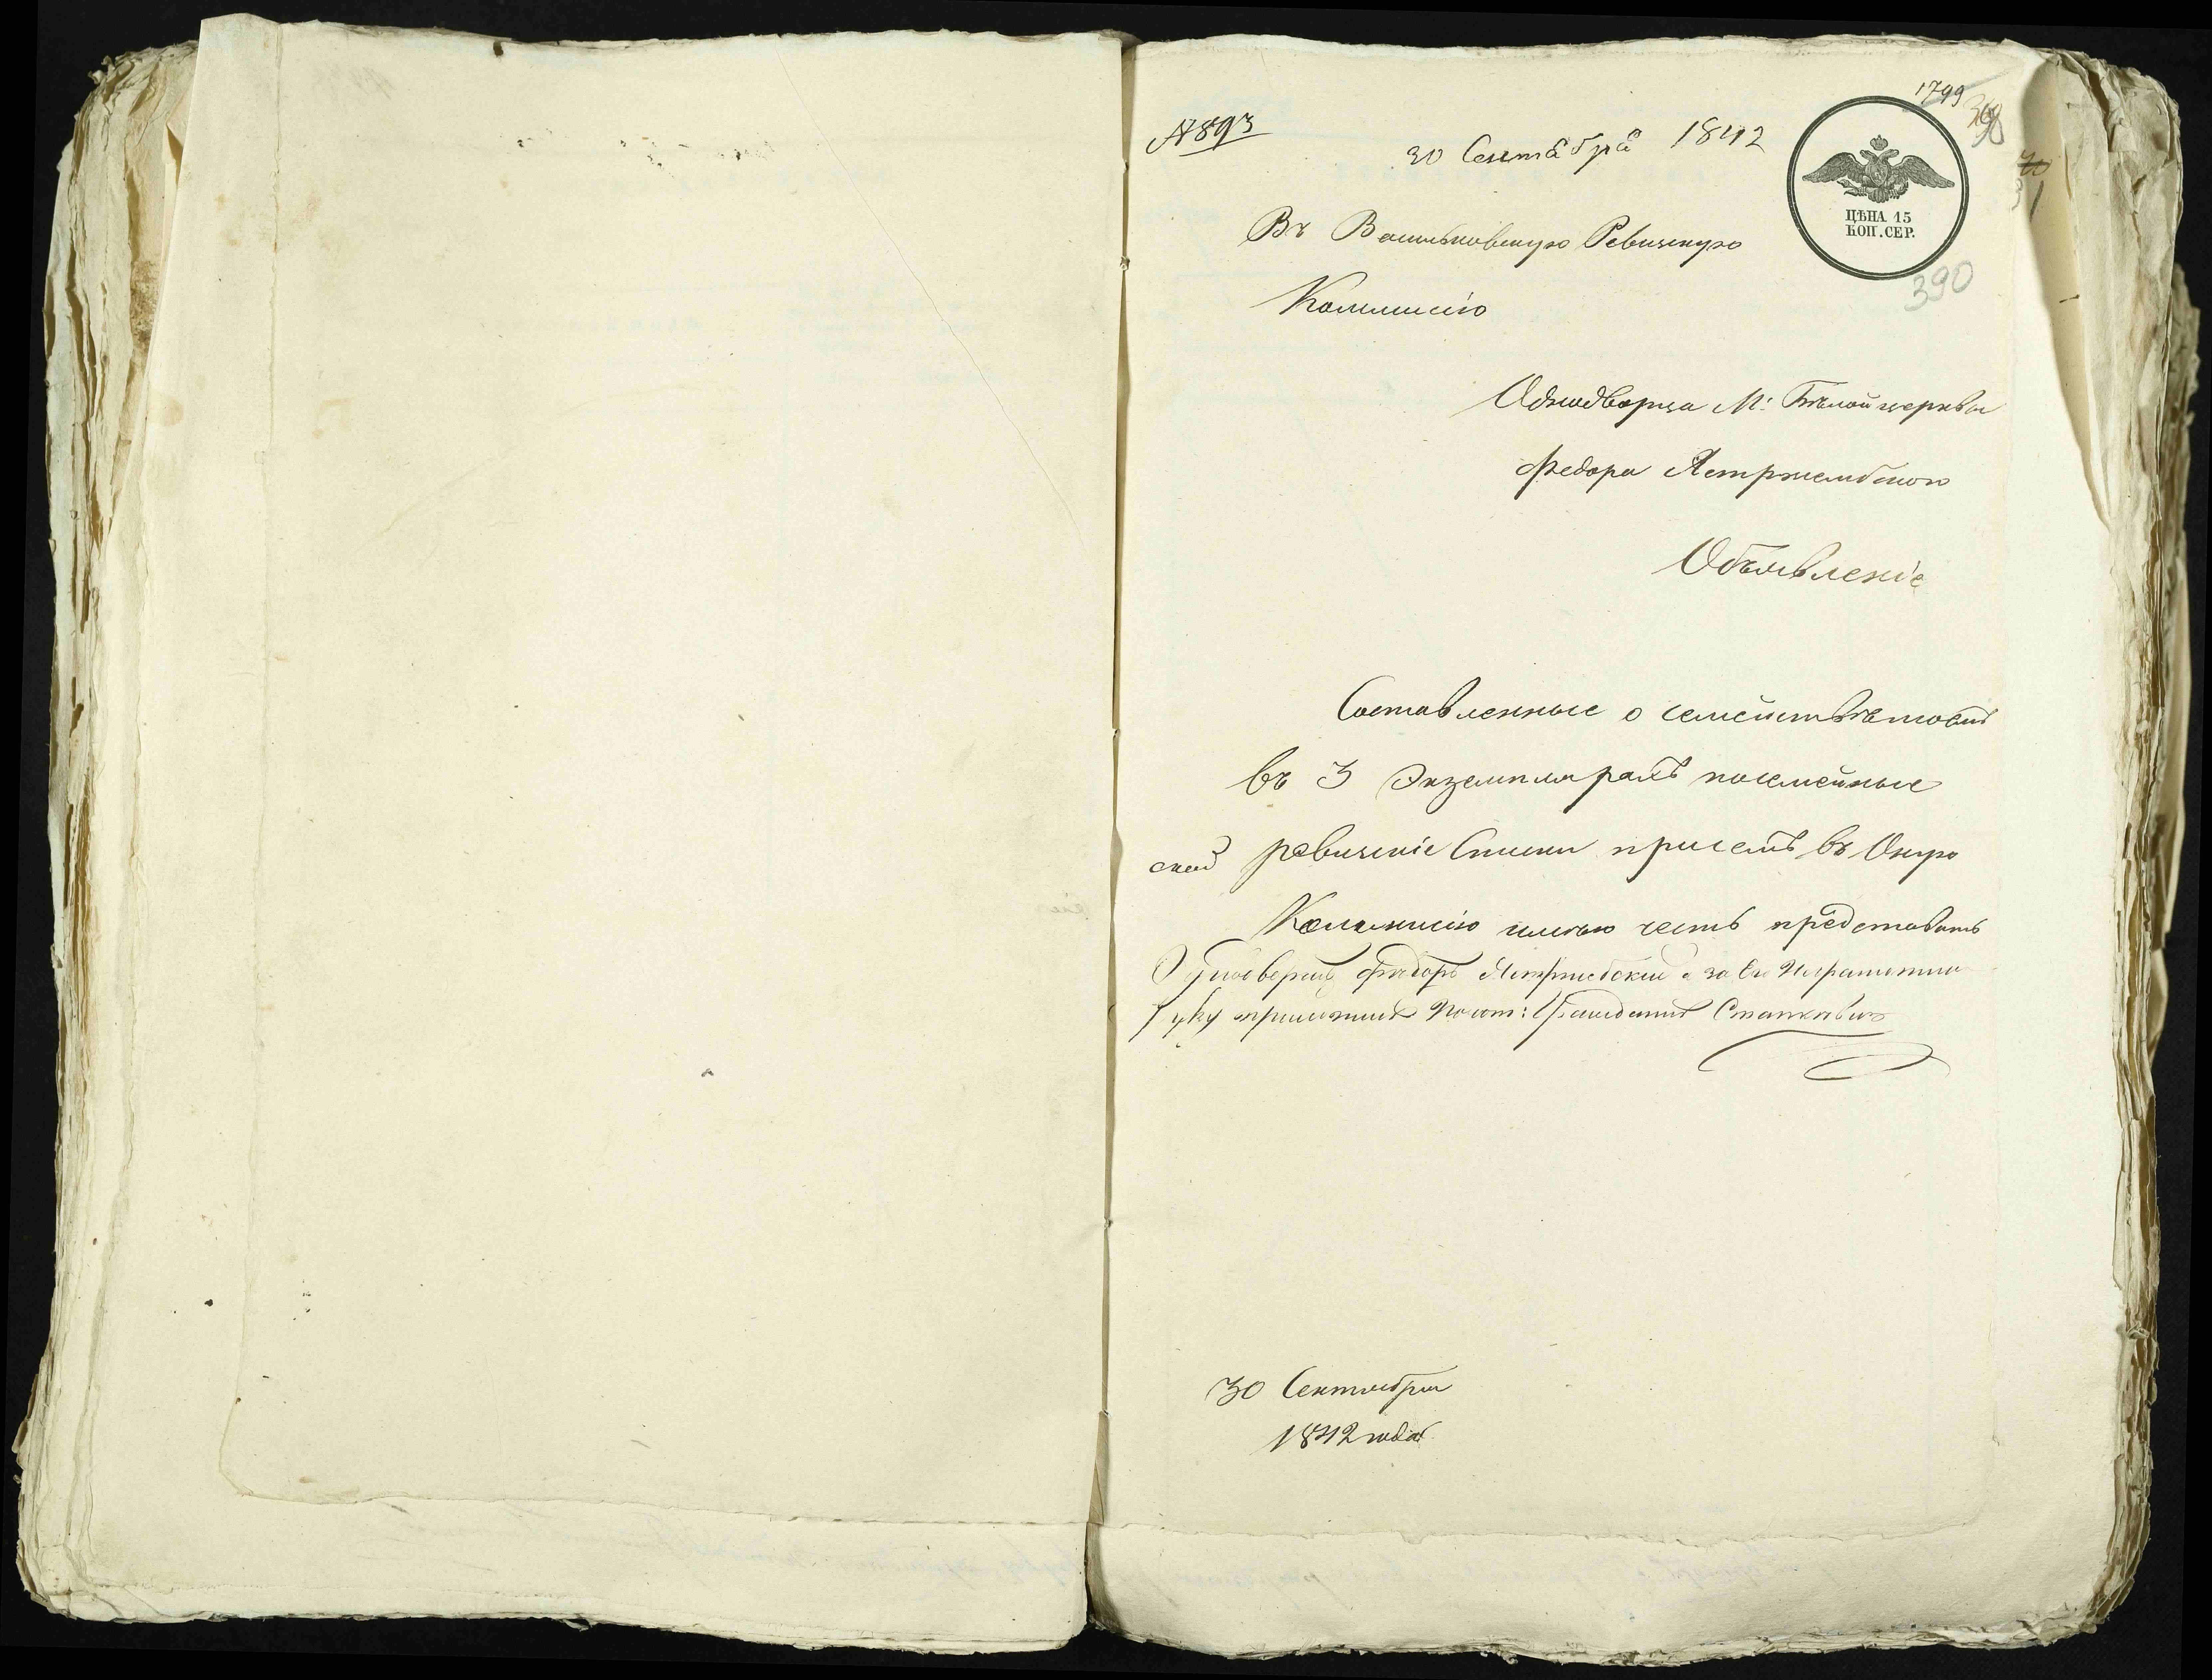 1799
№ 893
30 Сентября 1842
ЦѢНА 15
КОП. СЕР.
390
Въ Васильковскую Ревизскую
Коммисію
Однодворца М: Бѣлой церкви
Федора Ястржембского
Объявленіе
Составленные о семействѣ моемъ
въ 3 Экземплярахъ посемейные
ревизскіе Списки при семъ въ Оную
Коммисію имѣю честь представить
Однодворецъ Федоръ Ястржембскій а за Его Неграмотного
руку приложилъ Почот: Гражданинъ Станкевичъ
30 Сентября
1842 года